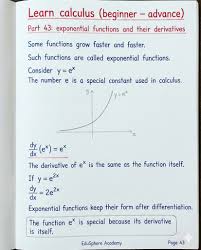 Learn calculus (beginner – advance)
Part 43: exponential functions and their derivatives
Some functions grow faster and faster.
Such functions are called exponential functions.
Consider y = eˣ
The number e is a special constant used in calculus.
y
y = eˣ
x
dy/dx (eˣ) = eˣ
The derivative of eˣ is the same as the function itself.
If y = e²ˣ
dy/dx = 2e²ˣ
Exponential functions keep their form after differentiation.
The function eˣ is special because its derivative
is itself.
EduSphere Academy
Page 43